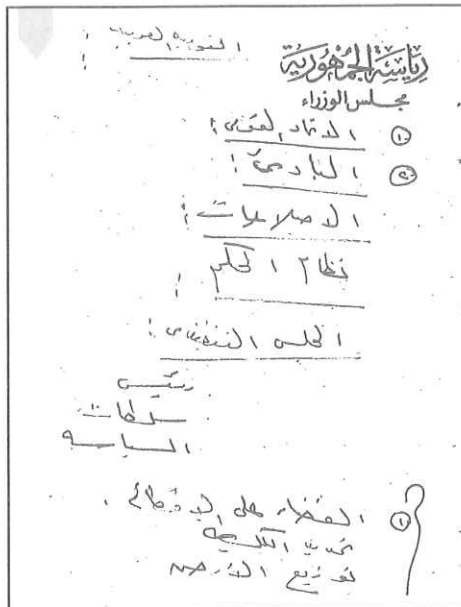 القومية العربية :
رياسة الجمهورية
مجلس الوزراء
① الاتحاد القومى :
② المبادئ :
الاصلاحات :
نظام الحكم :
المجلس التنفيذى :
رئيس
سلطات
السياسه
① القضاء على الاقطاع .
تحديد الملكيه
توزيع الأرض